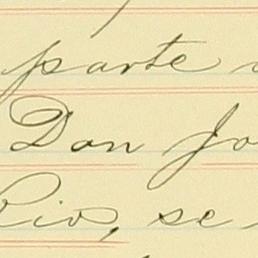 parte
Don Jo
Rio, se